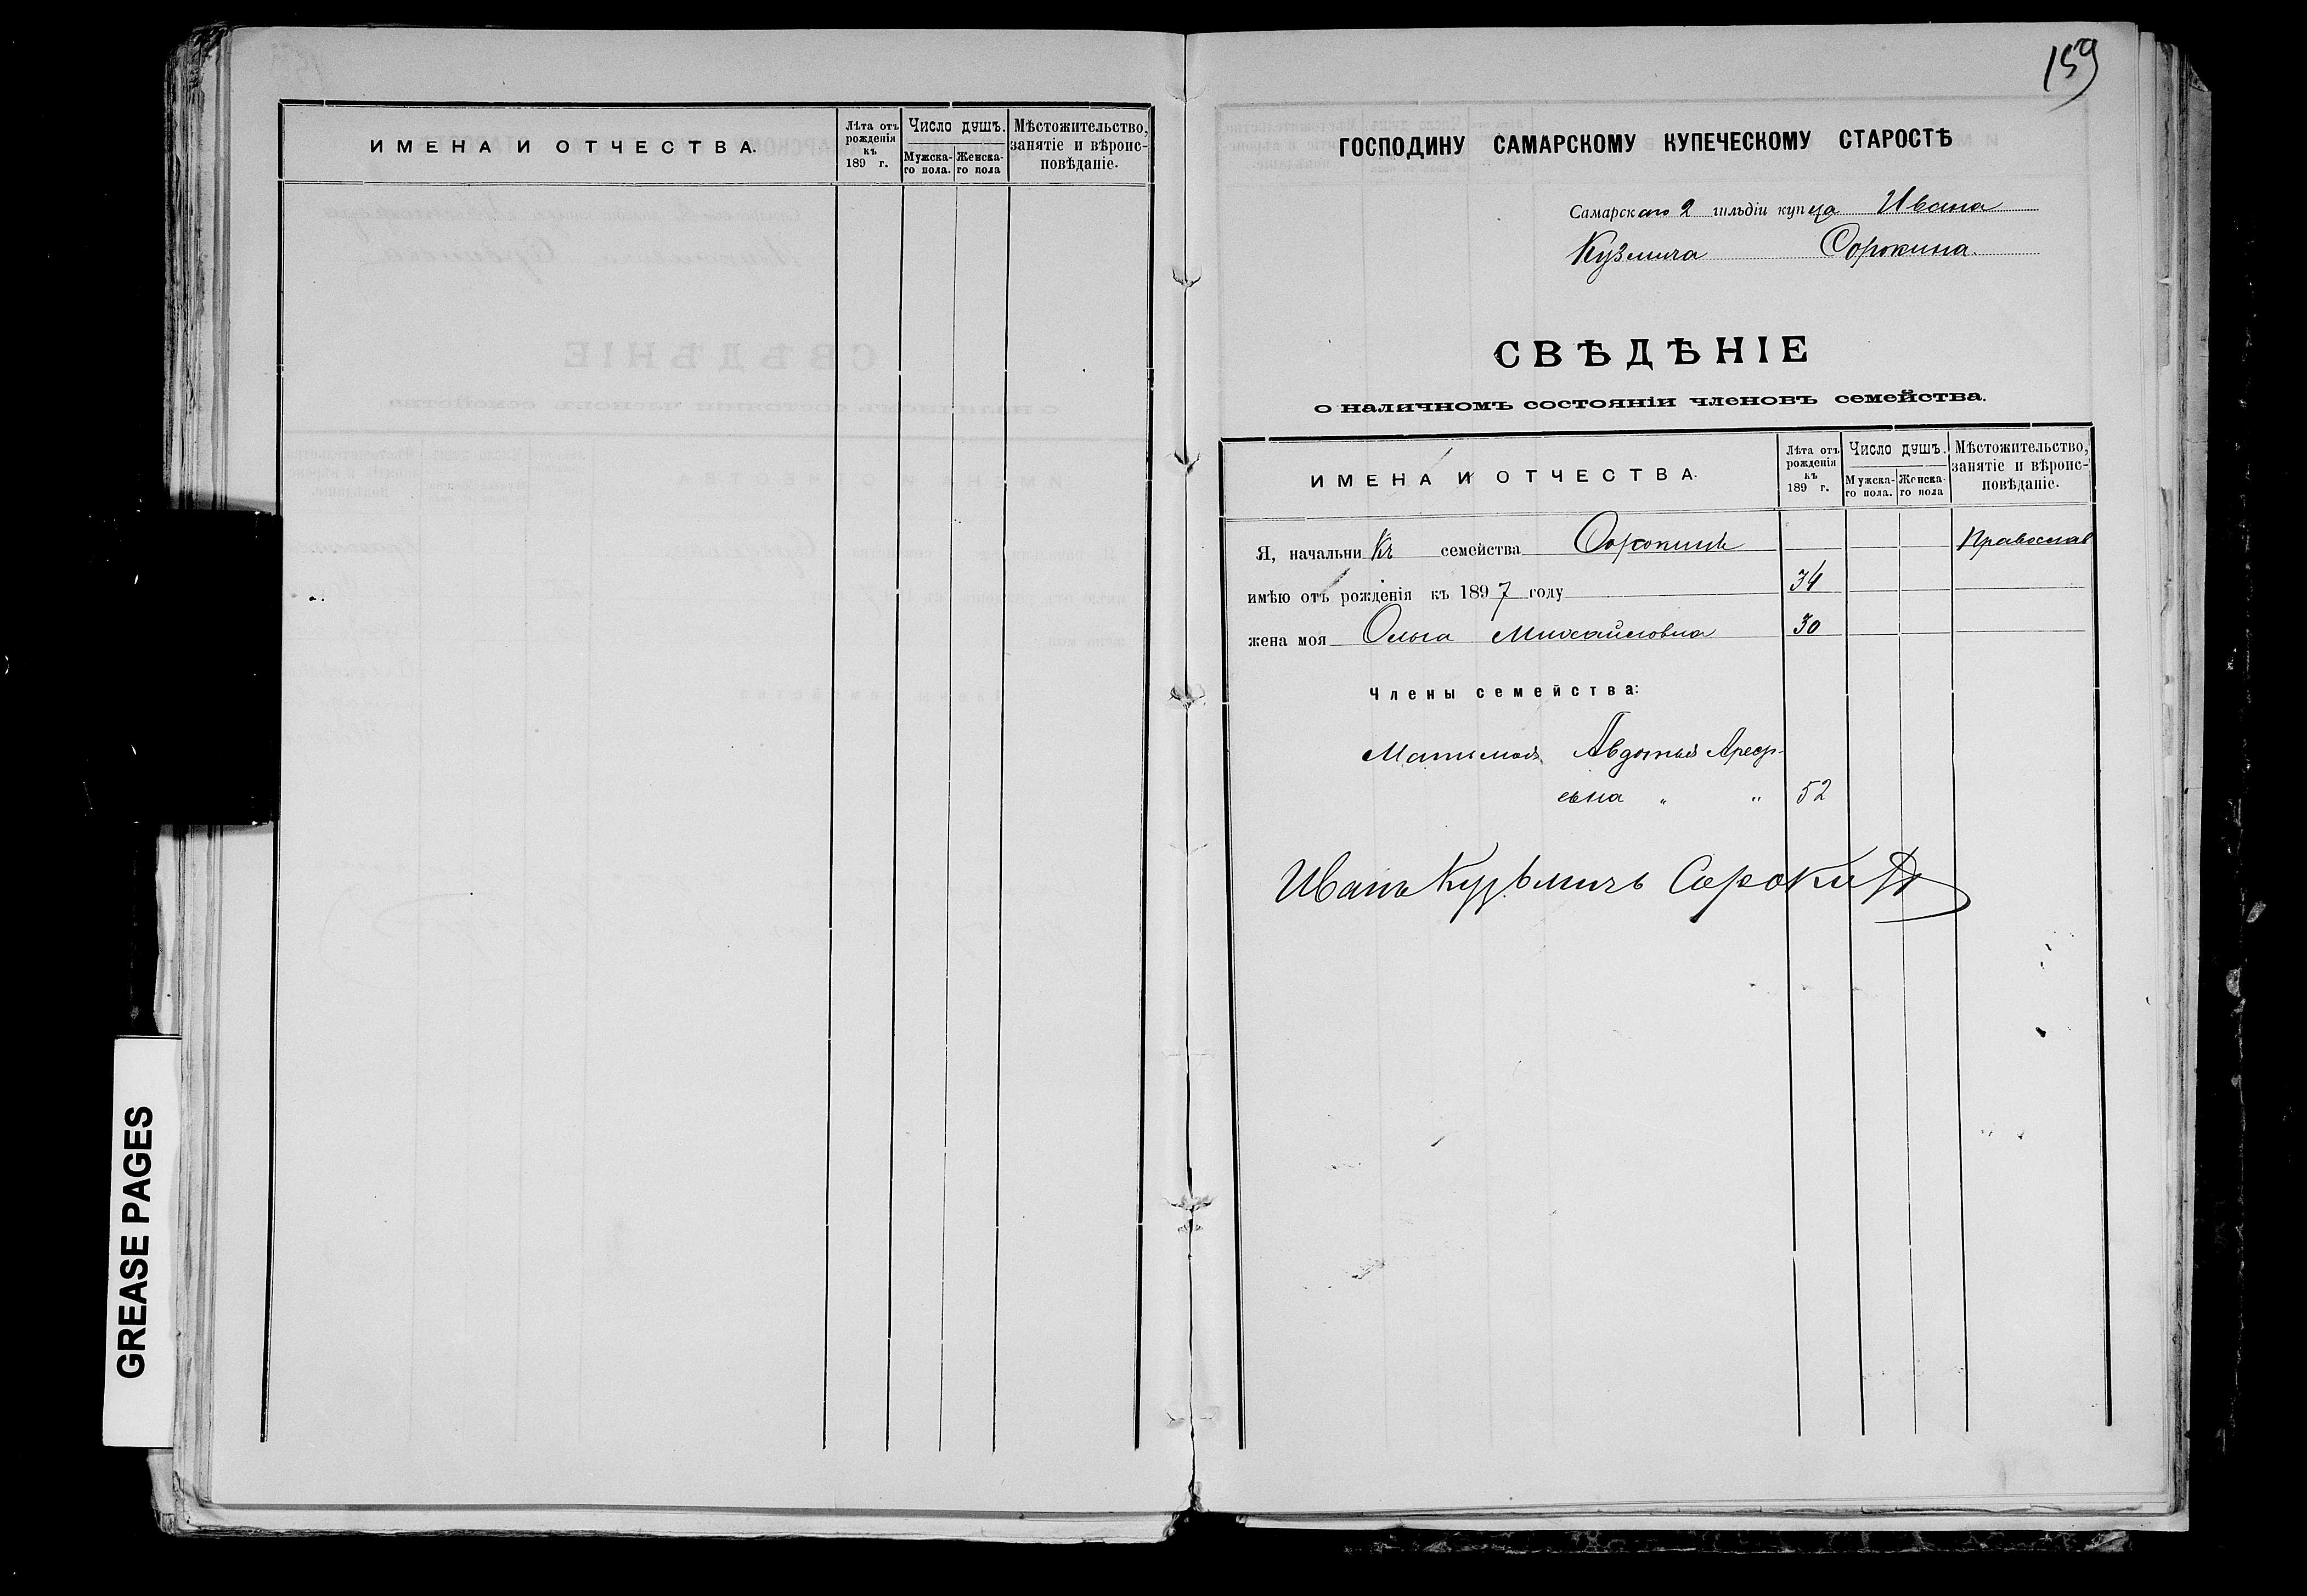 ИМЕНА И ОТЧЕСТВА.
Лѣта отъ рожденія къ 189 г.
Число душъ.
Мужска-го пола.
Женска-го пола
Мѣстожительство, занятіе и вѣроис-повѣданіе.
GREASE PAGES
159
ГОСПОДИНУ САМАРСКОМУ КУПЕЧЕСКОМУ СТАРОСТѢ
Самарскаго 2 гильдіи купца Ивана
Кузмича Сорокина.
СВѢДѢНІЕ
о наличномъ состояніи членовъ семейства.
ИМЕНА И ОТЧЕСТВА.
Лѣта отъ рожденія къ 189 г.
Число душъ.
Мужска-го пола.
Женска-го пола
Мѣстожительство, занятіе и вѣроис-повѣданіе.
Я, начальникъ семейства Сорокинъ Православ
имѣю отъ рожденія къ 1897 году 34
жена моя Ольга Михайловна 30
Члены семейства:
Авдотья Ареф-
евна " " 52
Иванъ Кузьмичъ Сорокин